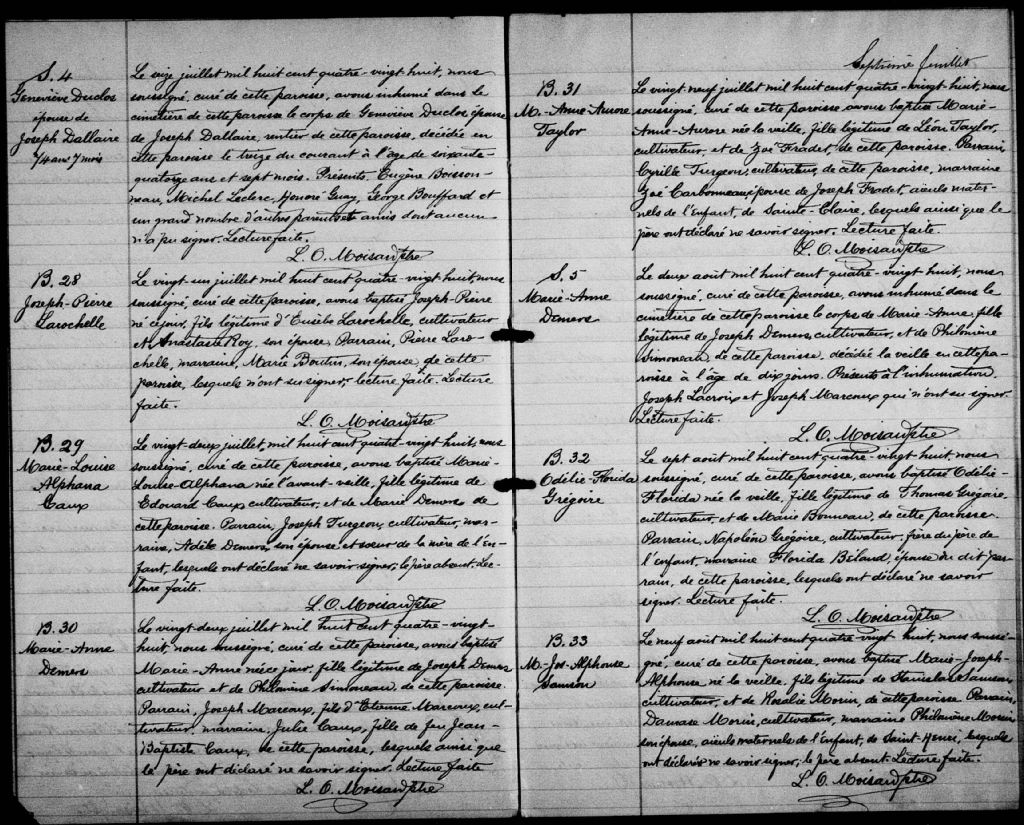 S. 4
Geneviève Duclos
épouse de
Joseph Dallaire
74 ans 7 mois
Le seize juillet mil huit cent quatre-vingt huit, nous
soussigné, curé de cette paroisse, avons inhumé dans le
cimetière de cette paroisse le corps de Geneviève Duclos, épouse
de Joseph Dallaire, rentier de cette paroisse, décédée en
cette paroisse le treize du courant à l'âge de soixante-
quatorze ans et sept mois. Présents, Eugène Boisson-
neau, Michel Leclerc, Honoré Guay, George Bouffard et
un grand nombre d'autres parents et amis dont aucun
n'a pu signer. Lecture faite.
L. O. Moisan Ptre
B. 28
Joseph-Pierre
Larochelle
Le vingt-un juillet mil huit cent quatre-vingt huit, nous
soussigné, curé de cette paroisse, avons baptisé Joseph-Pierre
né ce jour, fils légitime d'Eusèbe Larochelle, cultivateur
et Anastasie Roy, son épouse. Parrain, Pierre Laro-
chelle, marraine, Marie Boutin, son épouse, de cette
paroisse, lesquels n'ont su signer. lecture faite. Lecture
faite.
L. O. Moisan Ptre
B. 29
Marie-Louise
Alphana
Caux
Le vingt-deux juillet, mil huit cent quatre-vingt huit, nous
soussigné, curé de cette paroisse, avons baptisé Marie-
Louise-Alphana née l'avant-veille, fille légitime de
Edouard Caux cultivateur, et de Marie Demers de
cette paroisse. Parrain, Joseph Turgeon, cultivateur, mar-
raine, Adèle Demers, son épouse, et soeur de la mère de l'en-
fant, lesquels ont déclaré ne savoir signer, le père absent. Lec-
ture faite.
L. O. Moisan Ptre
B. 30
Marie-Anne
Demers
Le vingt-deux juillet mil huit cent quatre-vingt-
huit, nous soussigné, curé de cette paroisse, avons baptisé
Marie-Anne née ce jour, fille légitime de Joseph Demers
cultivateur et de Philomène Simoneau, de cette paroisse.
Parrain, Joseph Marcoux, fils d'Etienne Marcoux, cul-
tivateur, marraine, Julie Caux, fille de feu Jean-
Baptiste Caux, de cette paroisse, lesquels ainsi que
le père ont déclaré ne savoir signer. Lecture faite
L. O. Moisan Ptre
Septième feuillet
B. 31
M.-Anne-Aurore
Taylor
Le vingt neuf juillet mil huit cent quatre-vingt-huit, nous
soussigné, curé de cette paroisse, avons baptisé Marie-
Anne-Aurore née la veille, fille légitime de Léon Taylor,
cultivateur, et de Zoé Fradet, de cette paroisse. Parrain
Cyrille Turgeon, cultivateur, de cette paroisse, marraine
Zoé Carbonneau, épouse de Joseph Fradet, aïeuls mater-
nels de l'Enfant, de Sainte-Claire, lesquels ainsi que le
père ont déclaré ne savoir signer. Lecture faite.
L. O. Moisan Ptre
S. 5
Marie-Anne
Demers
Le deux août mil huit cent quatre-vingt huit, nous
soussigné, curé de cette paroisse, avons inhumé dans le
cimetière de cette paroisse le corps de Marie-Anne, fille
légitime de Joseph Demers, cultivateur, et de Philomène
Simoneau de cette paroisse, décédée la veille en cette pa-
roisse à l'âge de dix jours. Présents à l'inhumation,
Joseph Lacroix et Joseph Marcoux qui n'ont su signer.
Lecture faite.
L. O. Moisan Ptre
B. 32
Odélie-Florida
Grégoire
Le sept août mil huit cent quatre-vingt huit, nous
soussigné, curé de cette paroisse, avons baptisé Odélie-
Florida née la veille, fille légitime de Thomas Grégoire
cultivateur, et de Marie Bonneau, de cette paroisse.
Parrain, Napoléon Grégoire, cultivateur, frère du père de
l'enfant, marraine Florida Béland, épouse du dit par-
rain, de cette paroisse, lesquels ont déclaré ne savoir
signer. Lecture faite.
L. O. Moisan Ptre
B. 33
M-Jos-Alphonse
Samson
Le neuf août mil huit cent quatre-vingt huit, nous soussi-
gné, curé de cette paroisse, avons baptisé Marie-Joseph-
Alphonse, né la veille, fils légitime de Stanislas Samson,
cultivateur, et de Rosalie Morin, de cette paroisse. Parrain,
Damase Morin, cultivateur, marraine Philomène Morin
son épouse, aïeuls maternels de l'Enfant, de Saint Henri, lesquels
ont déclaré ne savoir signer, le père absent. Lecture faite.
L. O. Moisan Ptre